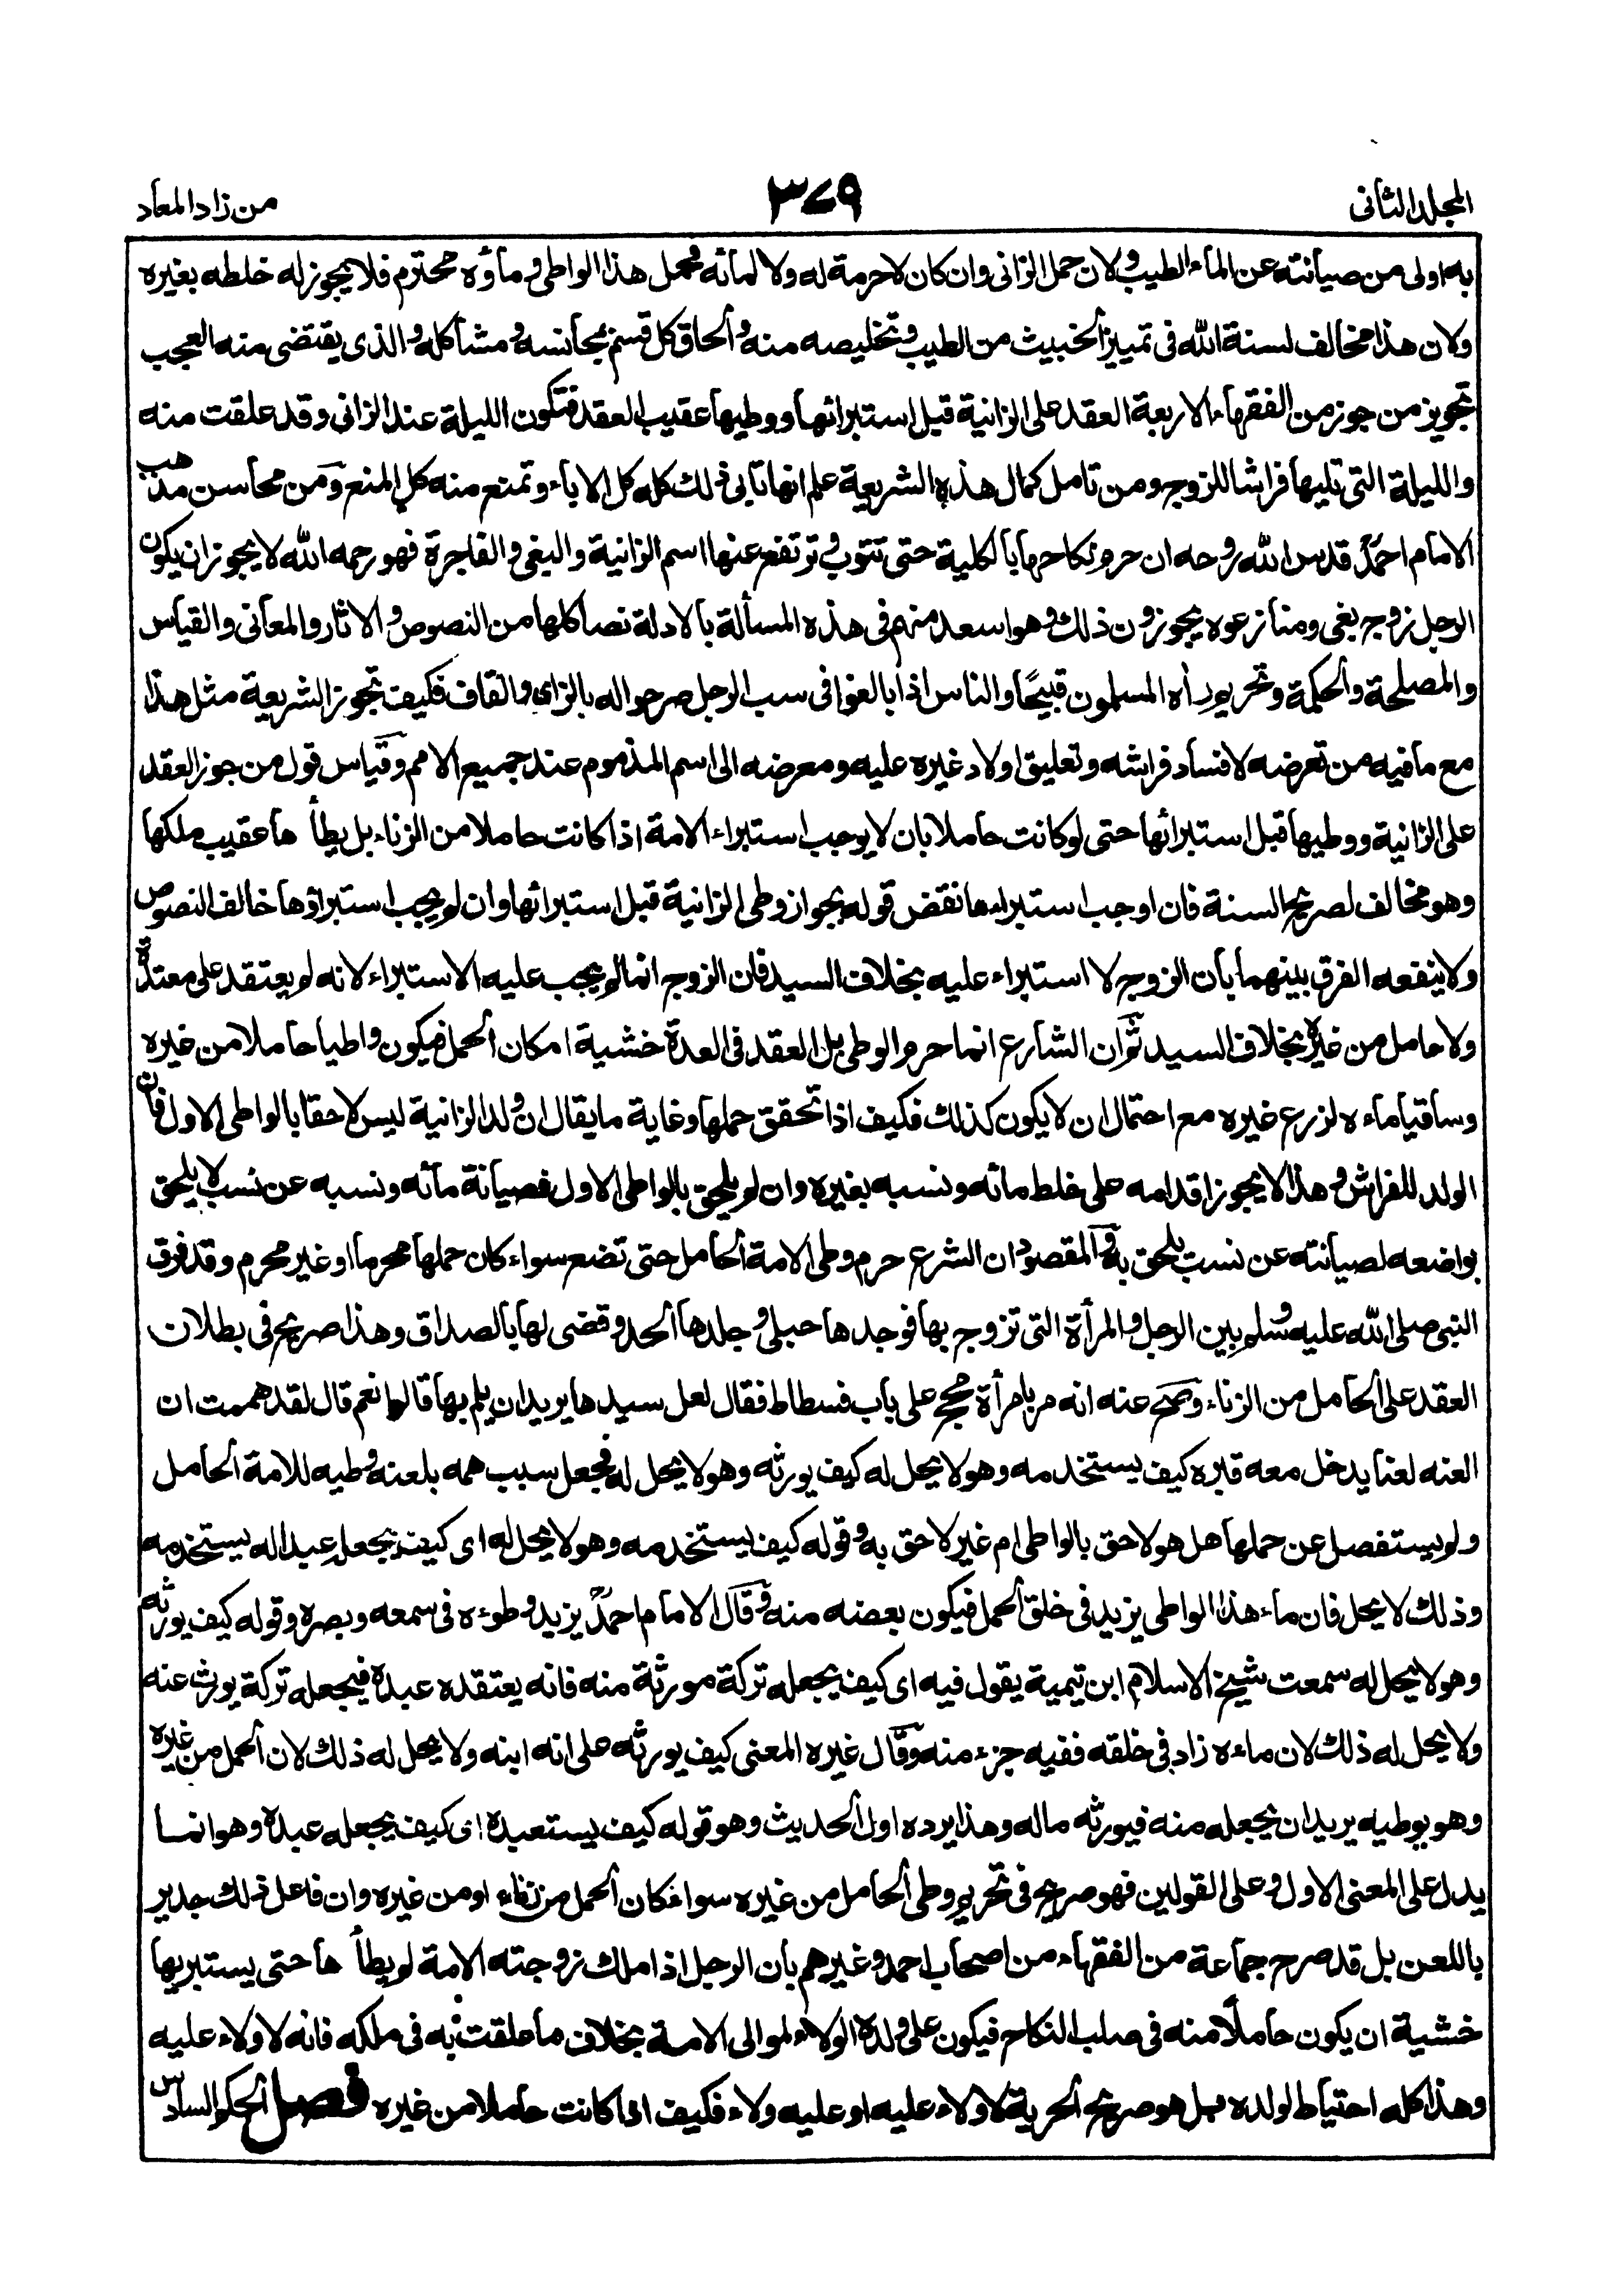 المجلد الثانى
٣٧٩
من زاد المعاد
به اولى من صيانته عن الماء الطيب ولان حمل الزانى وان كان لا حرمة له ولا لمائه فحمل هذا الواطى وماؤه محترم فلا يجوز له خلطه بغيره
ولان هذا مخالف لسنة الله فى تمييز الخبيث من الطيب وتخليصه منه والحاق كل قسم بمجانسه ومشاكله والذى يقتضى منه العجب
تجويز من جوز من الفقهاء الاربعة العقد على الزانية قبل استبرائها ووطيها عقيب العقد فتكون الليلة عند الزانى وقد علقت منه
والليلة التى تليها فراشا للزوج ومن تامل كمال هذه الشريعة علم انها تابى ذلك كله كل الاباء وتمنع منه كل المنع ومن محاسن مذهب
الامام احمد قدس الله روحه ان حرم نكاحها بالكلية حتى تتوب وترتفع عنها اسم الزانية والبغى والفاجرة فهو رحمه الله لا يجوز ان يكون
الرجل زوج بغى ومنازعوه يجوزون ذلك وهو اسعد منهم فى هذه المسألة بالادلة نصا كلها من النصوص والاثار والمعانى والقياس
والمصلحة والحكمة وتحريم رأه المسلمون قبيحًا والناس اذا بالغوا فى سب الرجل صرحوا له بالزاى والقاف فكيف تجوز الشريعة مثل هذا
مع ما فيه من تعرضه لافساد فراشه وتعليق اولاد غيره عليه ومعرضه الى اسم المذموم عند جميع الامم وقياس قول من جوز العقد
على الزانية ووطيها قبل استبرائها حتى لو كانت حاملا بان لا يوجب استبراء الامة اذا كانت حاملا من الزناء بل يطأ ها عقيب ملكها
وهو مخالف لصريح السنة فان اوجب استبراءها نقض قوله بجواز وطى الزانية قبل استبرائها وان لم يجب استبراؤها خالف النصوص
ولا ينفعه الفرق بينهما بان الزوج لا استبراء عليه بخلاف السيد فان الزوج انما لم يجب عليه الاستبراء لانه لم يعتقد على معتدة
ولا حامل من غيره بخلاف السيد ثم ان الشارع انما حرم الوطى بل العقد فى العدة خشية امكان الحمل فيكون واطيا حاملا من غيره
وساقيا ماءه لزرع غيره مع احتمال ان لا يكون كذلك فكيف اذا تحقق حملها وغاية ما يقال ان ولد الزانية ليس لاحقا بالواطى الاول فان
الولد للفراش وهذا لا يجوز اقدامه على خلط مائه ونسبه بغيره وان لم يلحق بالواطى الاول فصيانة مائه ونسبه عن نسب لا يلحق
بواضعه لصيانته عن نسب يلحق به والمقصود ان الشرع حرم وطى الامة الحامل حتى تضع سواء كان حملها محرما او غير محرم وقد فرق
النبى صلى الله عليه وسلم بين الرجل والمرأة التى تزوج بها فوجدها حبلى وجلدها الحد وقضى لها بالصداق وهذا صريح فى بطلان
العقد على الحامل من الزناء وصح عنه انه مر بامرأة مجح على باب فسطاط فقال لعل سيدها يريد ان يلم بها قالوا نعم قال لقد هممت ان
العنه لعنا يدخل معه قبره كيف يستخدمه وهو لا يحل له كيف يورثه وهو لا يحل له فجعل سبب همه بلعنه وطيه للامة الحامل
ولم يستفصل عن حملها هل هو لاحق بالواطى ام غير لاحق به وقوله كيف يستخدمه وهو لا يحل له اى كيف يجعله عبدا له يستخدمه
وذلك لا يحل فان ماء هذا الواطى يزيد فى خلق الحمل فيكون بعضه منه وقال الامام احمد يزيد وطوءه فى سمعه وبصره وقوله كيف يورثه
وهو لا يحل له سمعت شيخ الاسلام ابن تيمية يقول فيه اى كيف يجعله تركة مورثة منه فانه يعتقده عبده فيجعله تركة يورث عنه
ولا يحل له ذلك لان ماءه زاد فى خلقه ففيه جزء منه وقال غيره المعنى كيف يورثه على انه ابنه ولا يحل له ذلك لان الحمل من غيره
وهو بوطيه يريد ان يجعله منه فيورثه ماله وهذا يرده اول الحديث وهو قوله كيف يستعبده اى كيف يجعله عبده وهو انما
يدل على المعنى الاول وعلى القولين فهو صريح فى تحريم وطى الحامل من غيره سواء كان الحمل من زناء او من غيره وان فاعل ذلك جدير
باللعن بل قد صرح جماعة من الفقهاء من اصحاب احمد وغيرهم بان الرجل اذا ملك زوجته الامة لم يطأ ها حتى يستبريها
خشية ان يكون حاملا منه فى صلب النكاح فيكون على ولده الولاء لموالى الامة بخلاف ما علقت به فى ملكه فانه لا ولاء عليه
وهذا كله احتياط لولده هل هو صريح الحرية لا ولاء عليه او عليه ولاء فكيف اذا كانت حاملا من غيره فصل الحكم السادس